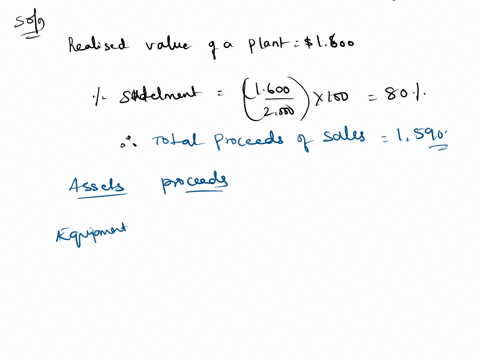 Soln
Realised value of a plant = $1.600
% Statelment = (1.600/2.000) × 100 = 80%
∴ Total proceeds of sales = 1,590.
Assets proceeds
Equipment